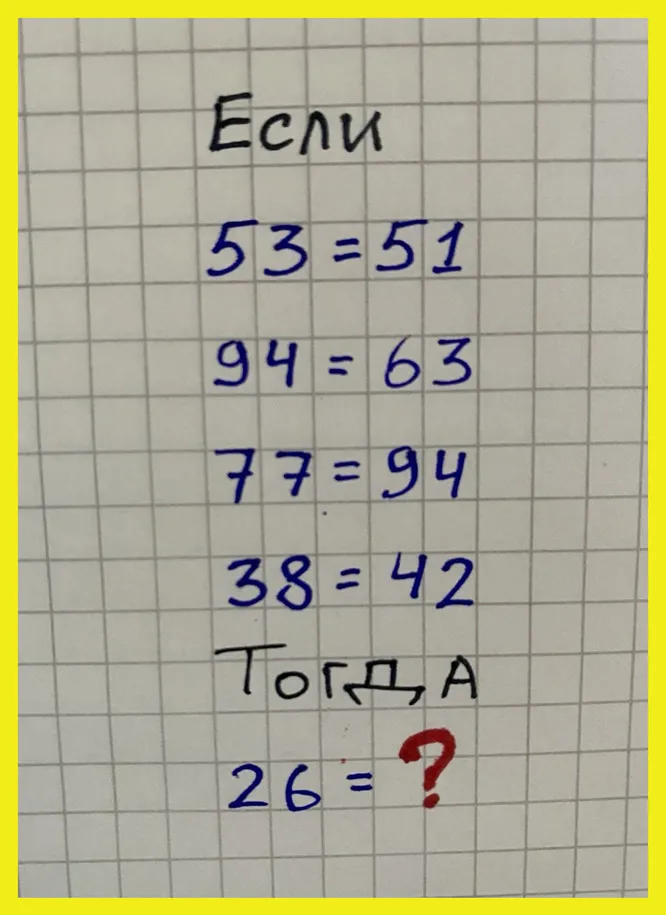 Если
53 = 51
94 = 63
77 = 94
38 = 42
Тогда
26 = ?